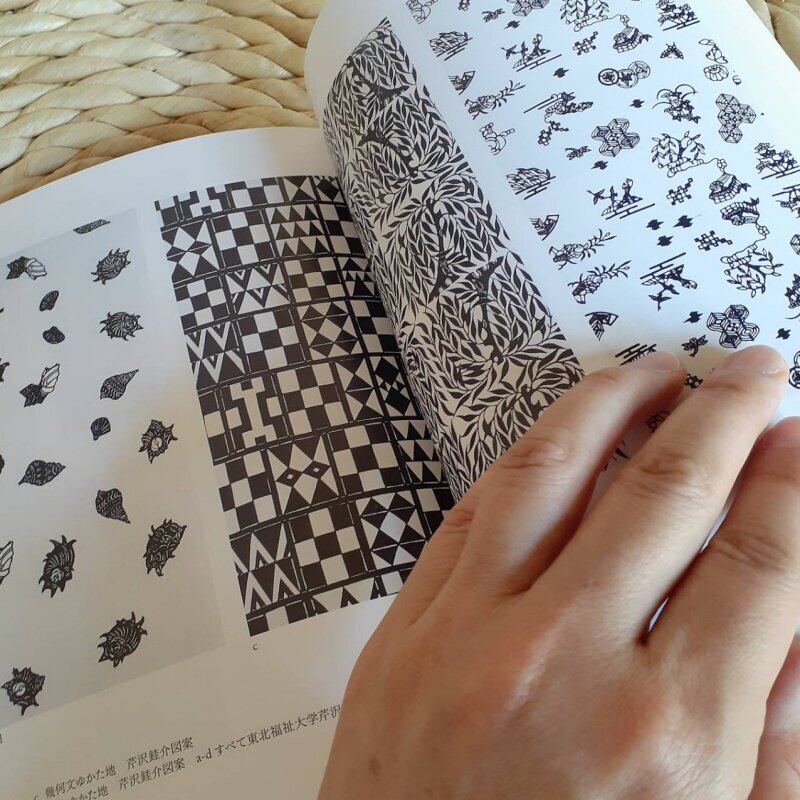 c
c 幾何文ゆかた地 芹沢銈介図案
ゆかた地 芹沢銈介図案 a-d すべて東北福祉大学芹沢